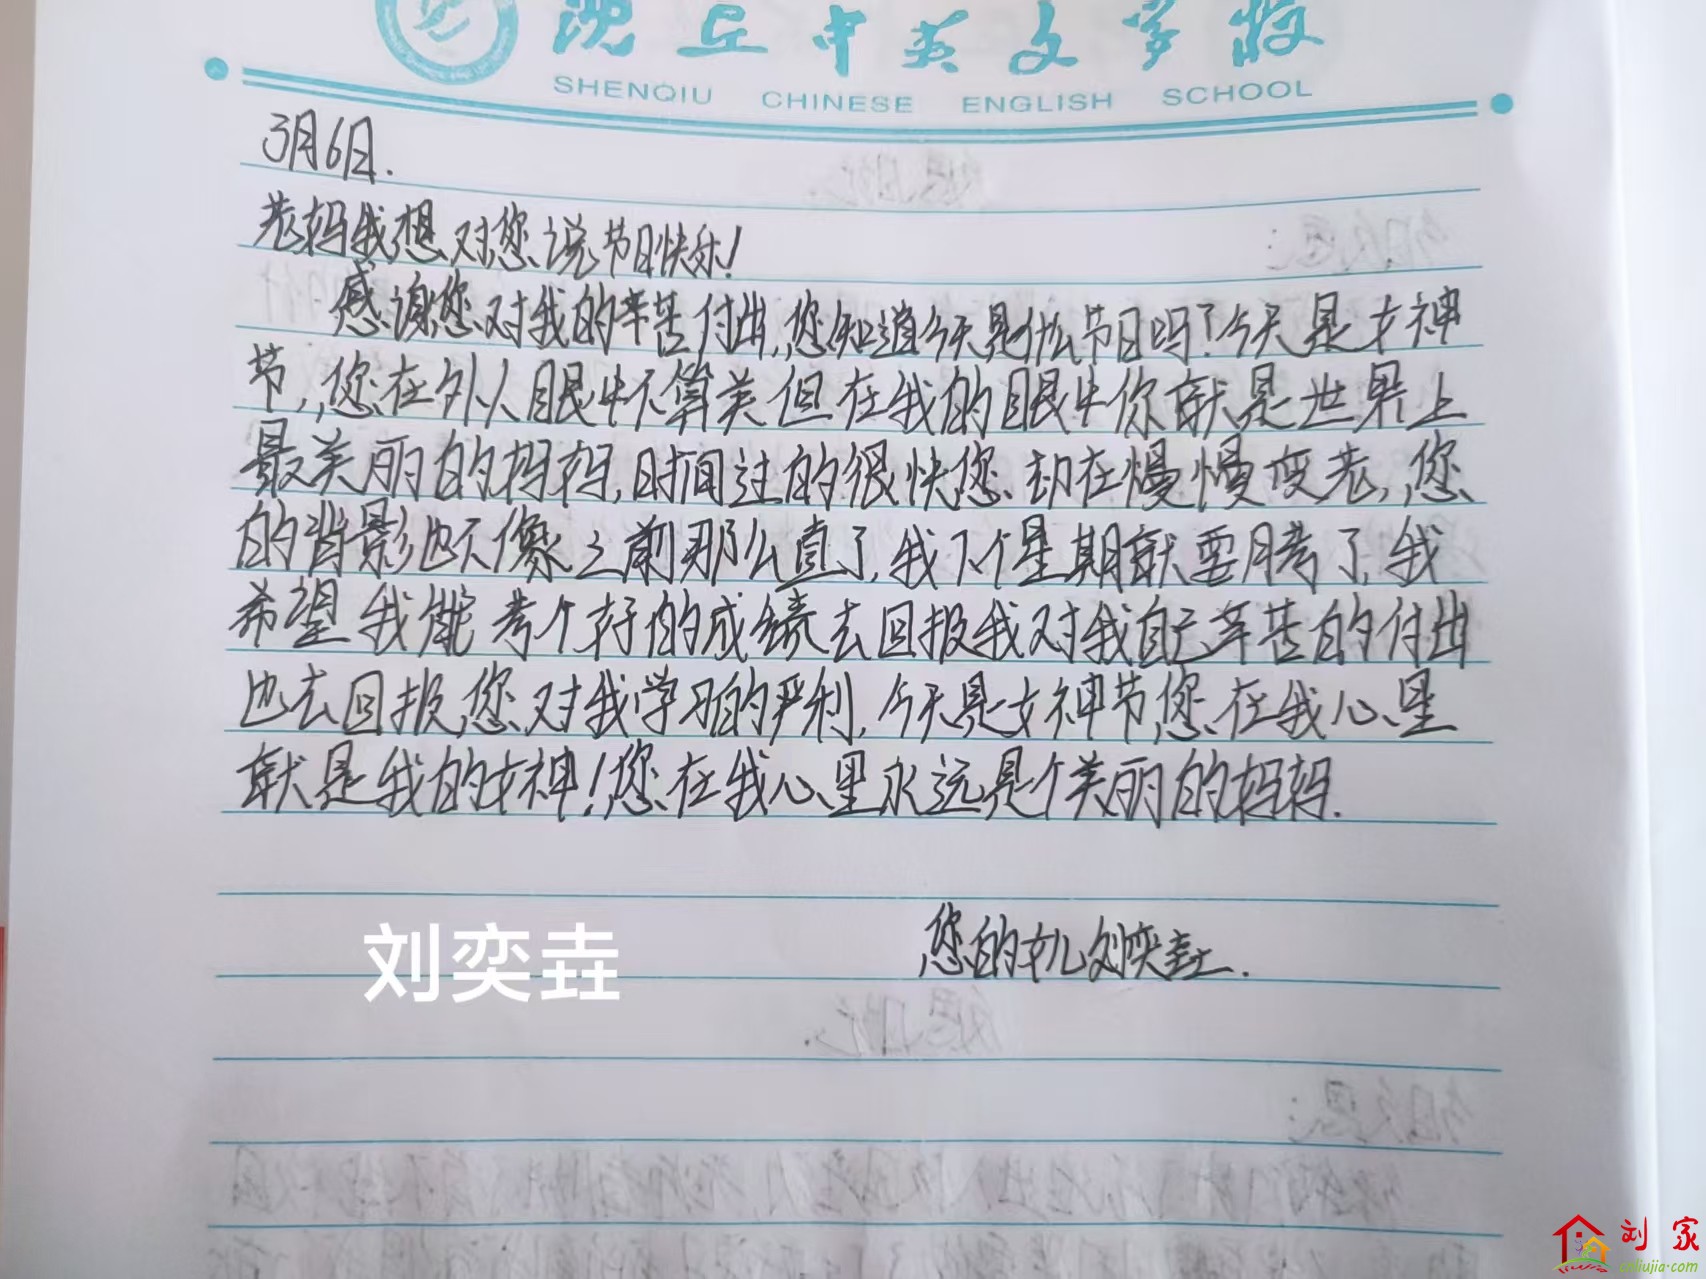 沈丘中英文学校
SHENQIU CHINESE ENGLISH SCHOOL
3月6日.
老妈我想对您说节日快乐!
感谢您对我的辛苦付出,您知道今天是什么节日吗?今天是女神
节,您在外人眼中不算美但在我的眼中你就是世界上
最美丽的妈妈,时间过的很快您却在慢慢变老,您
的背影也不像之前那么直了,我下个星期就要月考了,我
希望我能考个好的成绩去回报我对我自己辛苦的付出
也去回报您对我学习的严利,今天是女神节,您在我心里
就是我的女神!您在我心里永远是个美丽的妈妈.
您的女儿刘奕垚.
刘奕垚
刘家